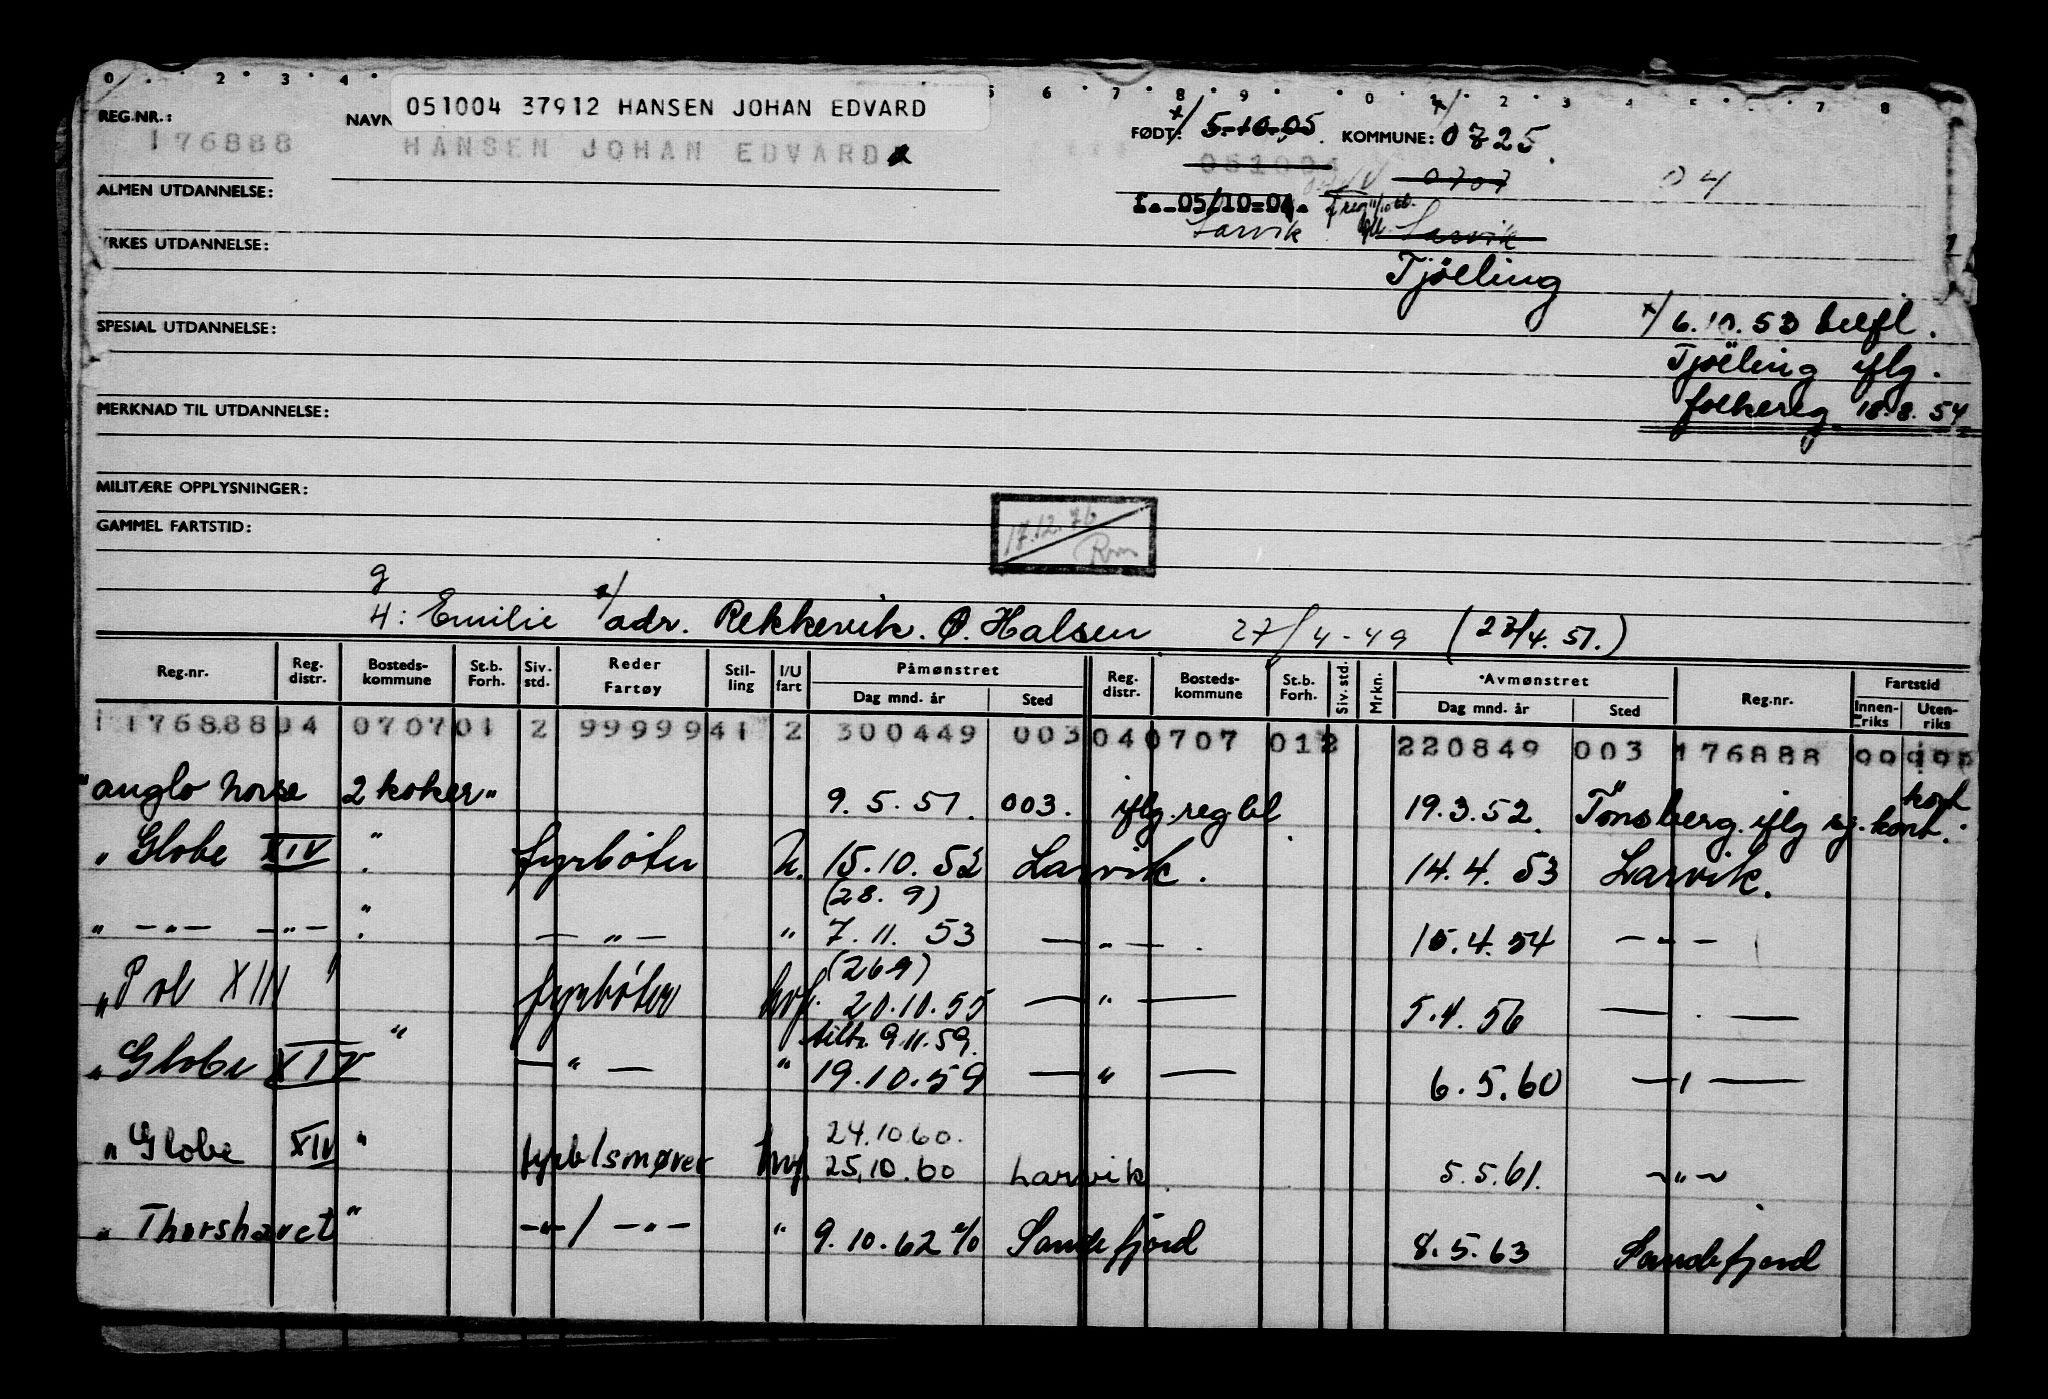 0 2 3 4 5 6 7 8 9 0 1 2 3 7 8
051004 37912 HANSEN JOHAN EDVARD
REG.NR.: 176888 NAVN HANSEN JOHAN EDVARD
FØDT: 5-10-05. KOMMUNE: 0725.
051004 0707 04
ALMEN UTDANNELSE:
f. 05/10-04. Larvik Larvik
YRKES UTDANNELSE:
Tjölling
SPESIAL UTDANNELSE:
x/ 6.10.53 tilfl.
Tjölling iflg.
MERKNAD TIL UTDANNELSE:
folkereg 18.8.54
MILITÆRE OPPLYSNINGER:
GAMMEL FARTSTID:
17.12.76
g
H: Emilie adr. Rekkevik. Ø. Halsen 27/4-49 (23/4.51.)
Reg.nr. Reg. distr. Bosteds-kommune St.b. Forh. Siv. std. Reder Fartøy Stil-ling I/U fart Påmønstret Dag mnd. år Sted Reg. distr. Bosteds-kommune St.b. Forh. Siv. std. Mrkn. Avmønstret Dag mnd. år Sted Reg.nr. Fartstid Innen-riks Uten-riks
1 176888 04 0707 01 2 99999 41 2 300449 003 04 0707 01 2 220849 003 176888 00
"anglo norse 2 koker" 9.5.51. 003. iflg. reg bl. 19.3.52. Tönsberg. iflg rg. kort.
" Globe XIV " fyrböter U. 15.10.52 Larvik. 14.4.53 Larvik.
(28.9)
" —"— —"— " —"— " 7.11.53 —"— 15.4.54 —"—
(26 9)
" Pol XIII " fyrböter hvf. 20.10.55 —"— 5.4.56 — . —
tiltr. 9.11.59.
" Globe XIV " —"— " 19.10.59 —"— 6.5.60 —"—
24.10.60.
" Globe XIV " fyrb/smører hvf. 25.10.60 Larvik. 5.5.61. —"—
" Thorshavet " —"—/—"— " 9.10.62 Sandefjord 8.5.63 Sandefjord